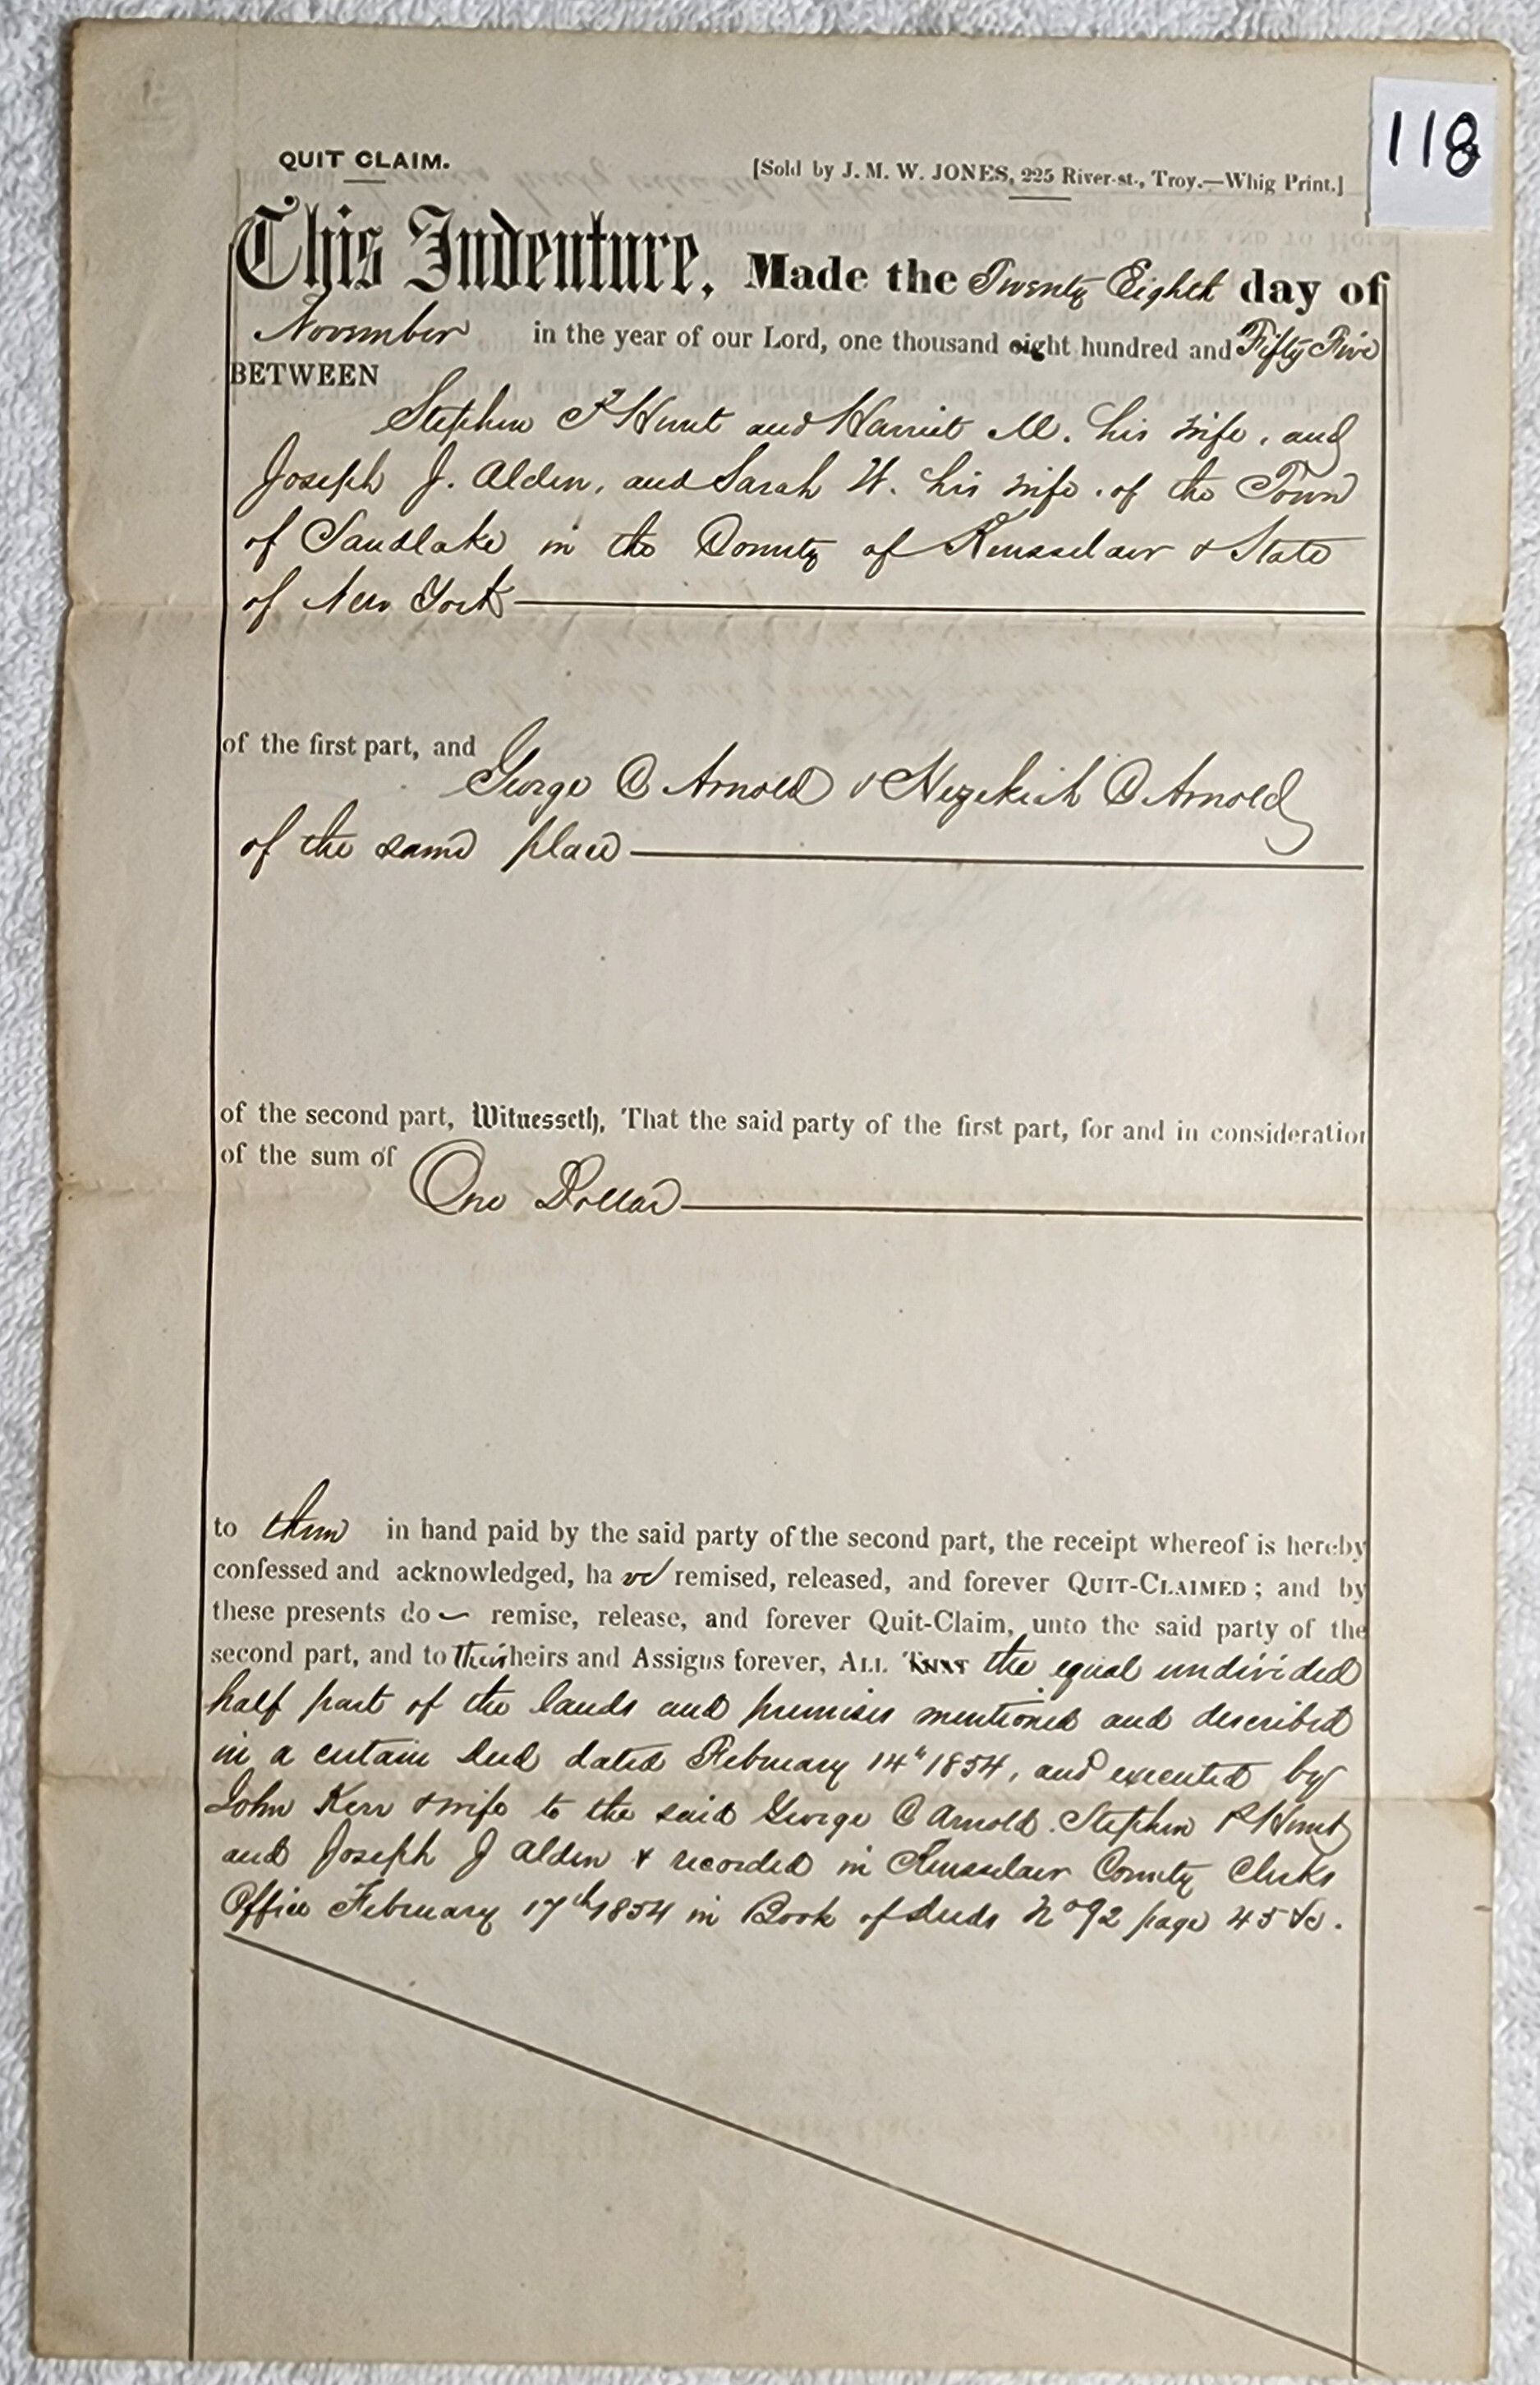 118
QUIT CLAIM.
[Sold by J. M. W. JONES, 225 River-st., Troy.—Whig Print.]
This Indenture, Made the Twenty Eighth day of
November in the year of our Lord, one thousand eight hundred and Fifty Five
BETWEEN
Stephen P Hunt and Harriet M. his wife, and
Joseph J. Alden, and Sarah W. his wife, of the Town
of Sandlake in the County of Rensselaer & State
of New York
of the first part, and
George C Arnold & Hezekiah C Arnold
of the same place
of the second part, Witnesseth, That the said party of the first part, for and in consideration
of the sum of
One Dollar
to them in hand paid by the said party of the second part, the receipt whereof is hereby
confessed and acknowledged, ha ve remised, released, and forever QUIT-CLAIMED; and by
these presents do remise, release, and forever Quit-Claim, unto the said party of the
second part, and to their heirs and Assigns forever, ALL THAT the equal undivided
half part of the lands and premises mentioned and described
in a certain Deed dated February 14th 1854, and executed by
John Kerr & wife to the said George C Arnold. Stephen P Hunt
and Joseph J Alden & recorded in Rensselaer County Clerks
Office February 17th 1854 in Book of Deeds No 92 page 45 &c.